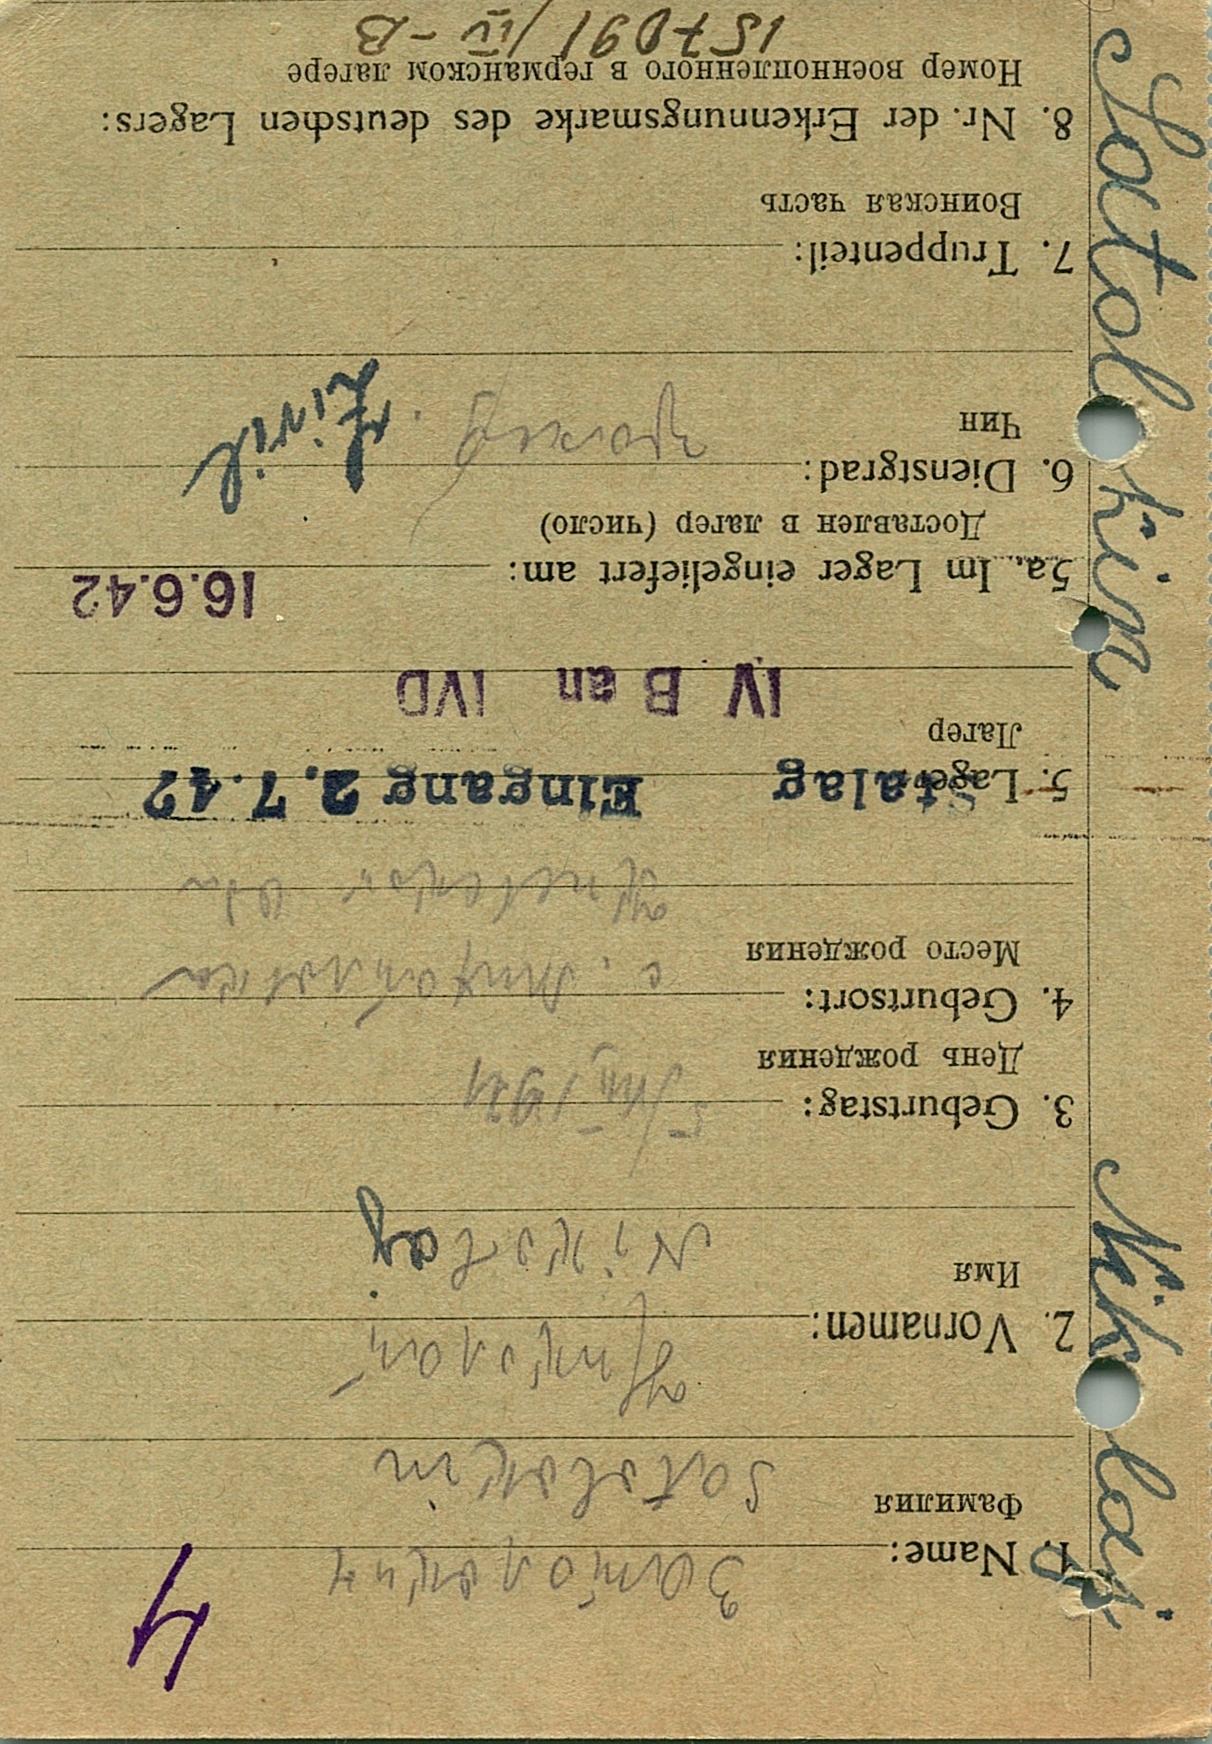 4
1. Name: Затолокин
Фамилия
Satolokin
2. Vornamen: Николай
Имя
Nikolaj
3. Geburtstag: 5/XII 1921
День рождения
4. Geburtsort: с.
Место рождения
5. Lager:
Stalag Eingang 2.7.42
Лагер
IV B an IVD
5a. Im Lager eingeliefert am: 16.6.42
Доставлен в лагер (число)
6. Dienstgrad: Zivil
Чин
7. Truppenteil:
Воинская часть
8. Nr. der Erkennungsmarke des deutschen Lagers:
Номер военнопленного в германском лагере
157091/IV-B
Satolokin Nikolaj